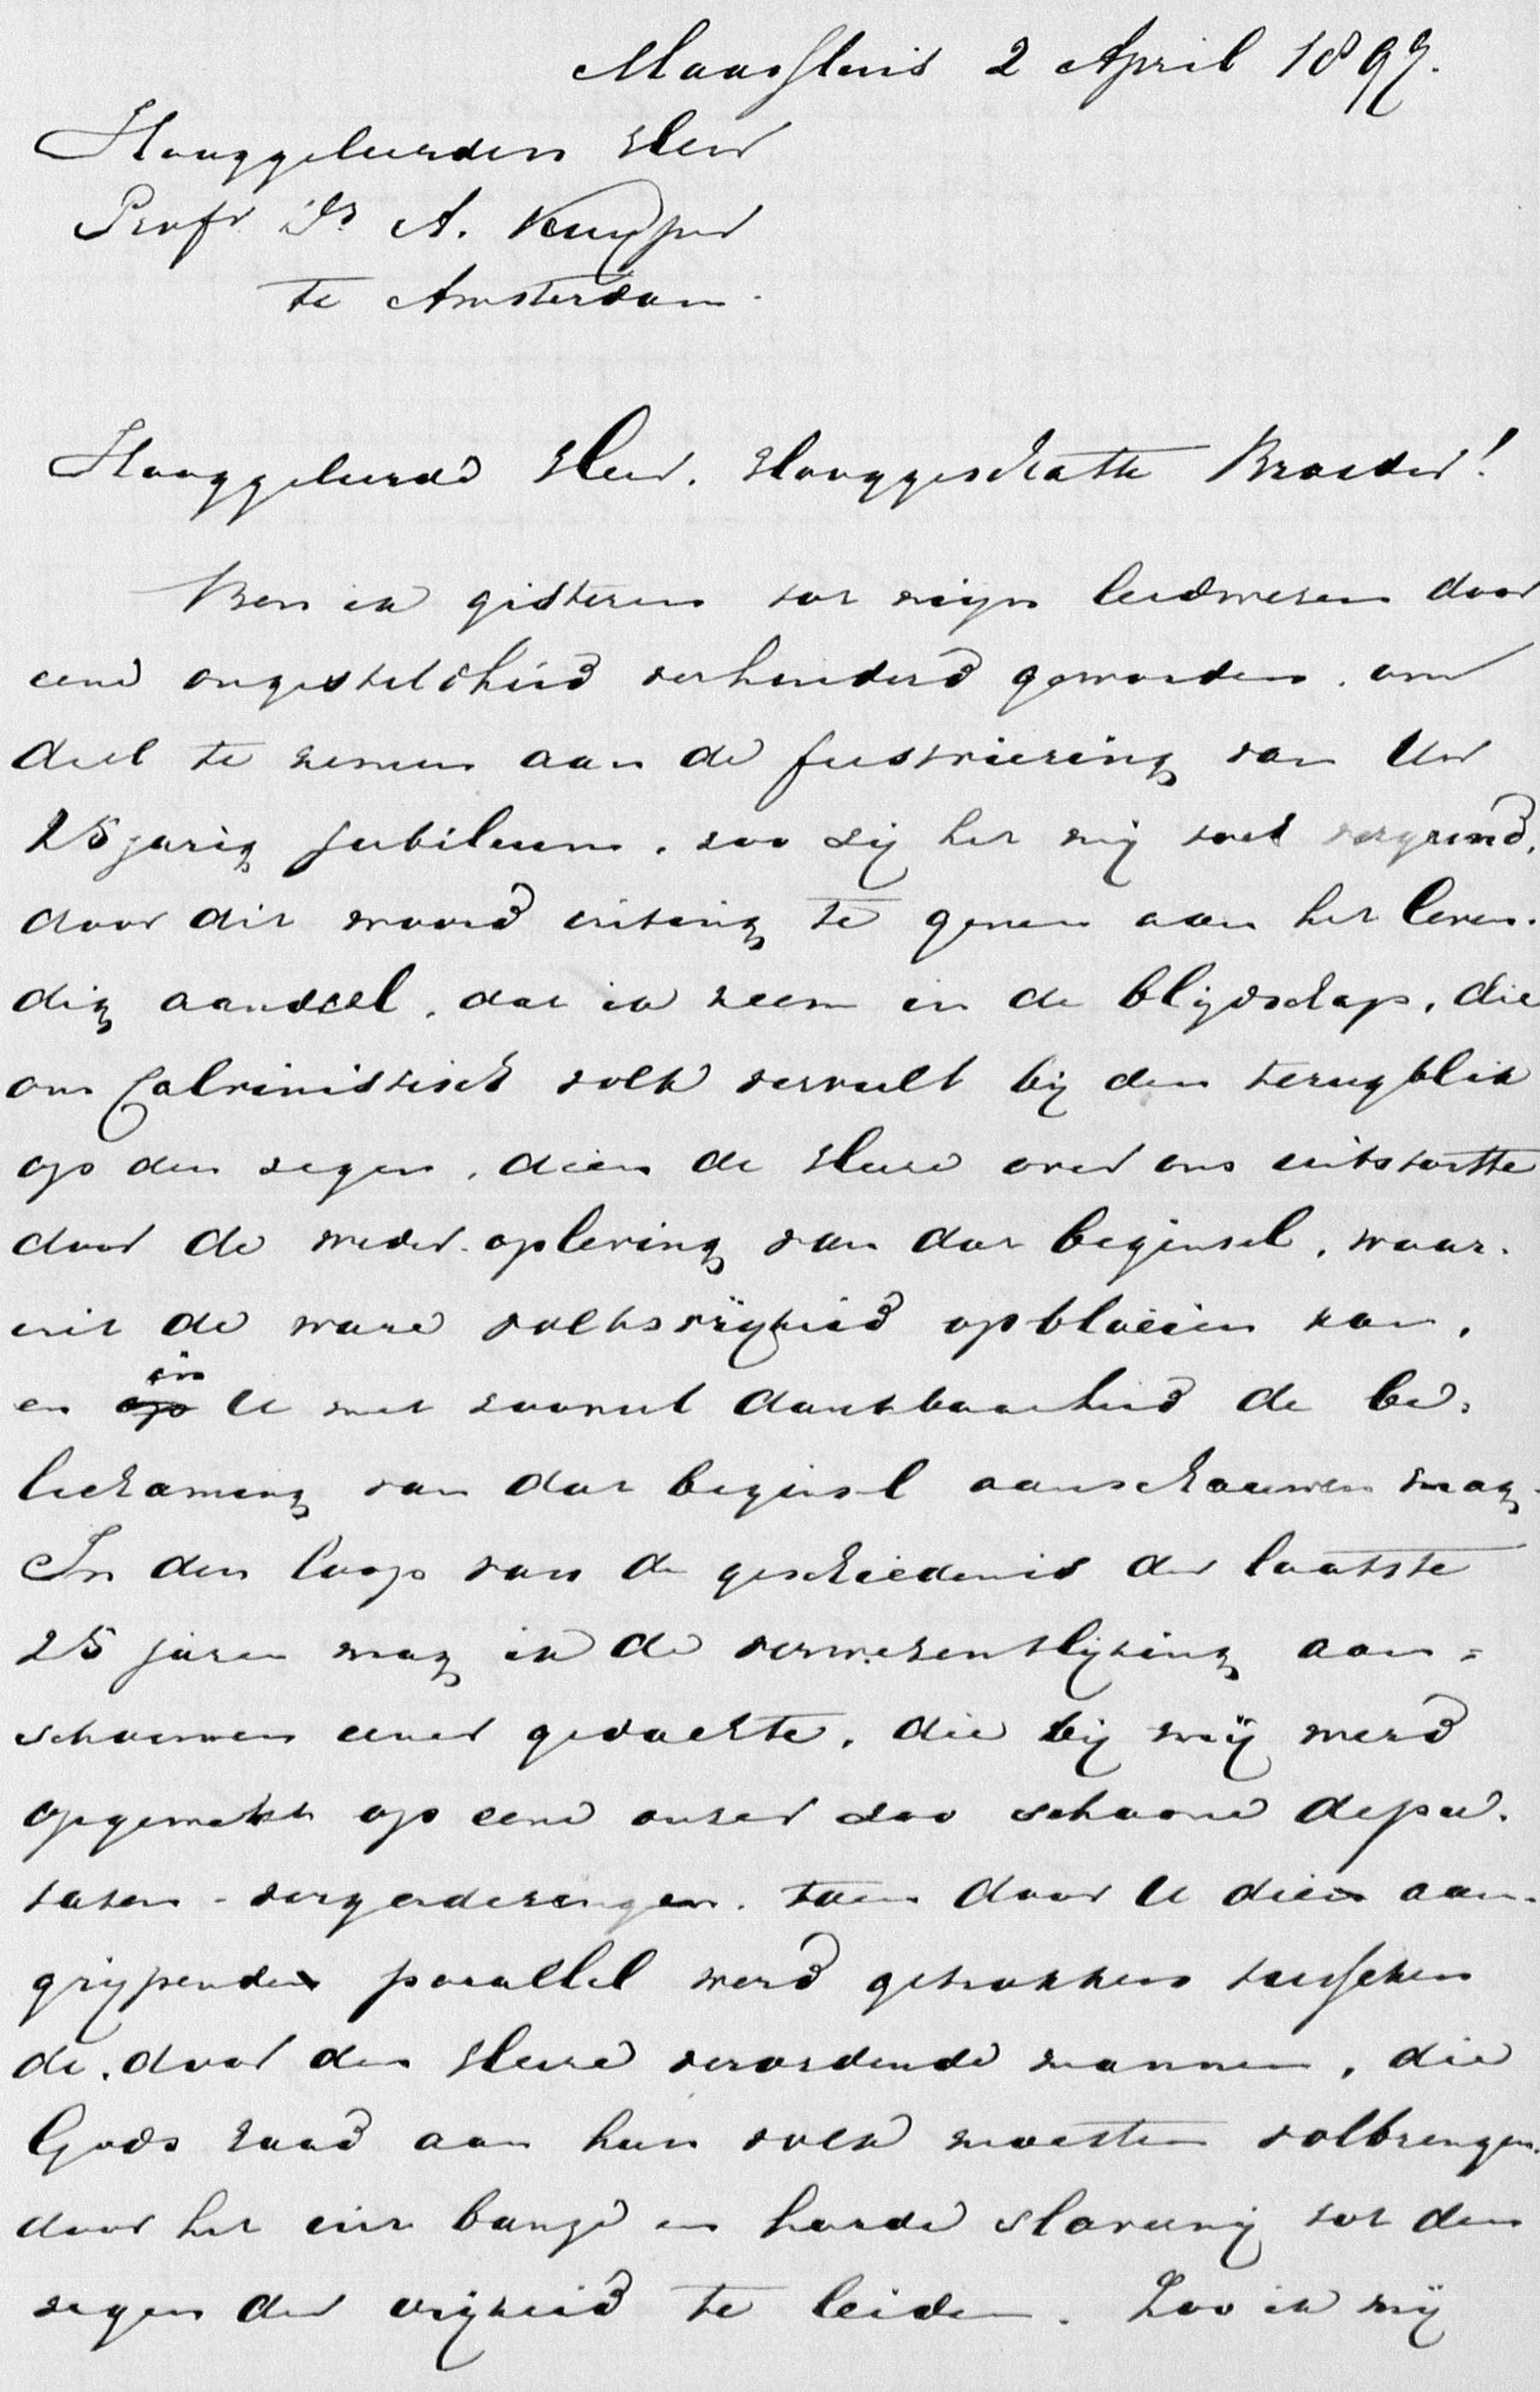 Maassluis 2 April 1897.
Hooggeleerden Heer
Profr. Dr. A. Kuyper
te Amsterdam.
Hooggeleerde Heer, Hooggeschatte Broeder!
Ben ik gisteren tot mijn leedwezen door
eene ongesteldheid verhinderd geworden, om
deel te nemen aan de feestviering van Uw
25 jarig jubileum, zoo zij het mij toch vergund,
door dit woord uiting te geven aan het leven-
dig aandeel, dat ik neem in de blijdschap, die
ons Calvinistisch volk vervult bij den terugblik
op den zegen, dien de Heere over ons uitstortte
door de weder-opleving van dat beginsel, waar-
uit de ware volksvrijheid opbloeien kan,
en in U met zooveel dankbaarheid de be-
lichaming van dat beginsel aanschouwen mag.
In den loop van de geschiedenis der laatste
25 jaren mag ik de verwezenlijking aan=
schouwen eener gedachte, die bij mij werd
opgewekt op eene onzer zoo schoone depu-
taten-vergaderingen, toen door U die aan-
grijpende parallel werd getrokken tusschen
de, door den Heere verordende mannen, die
Gods raad aan hun volk moesten volbrengen,
door het uit bange en harde slavernij tot den
zegen der vrijheid te leiden. Zoo ik mij